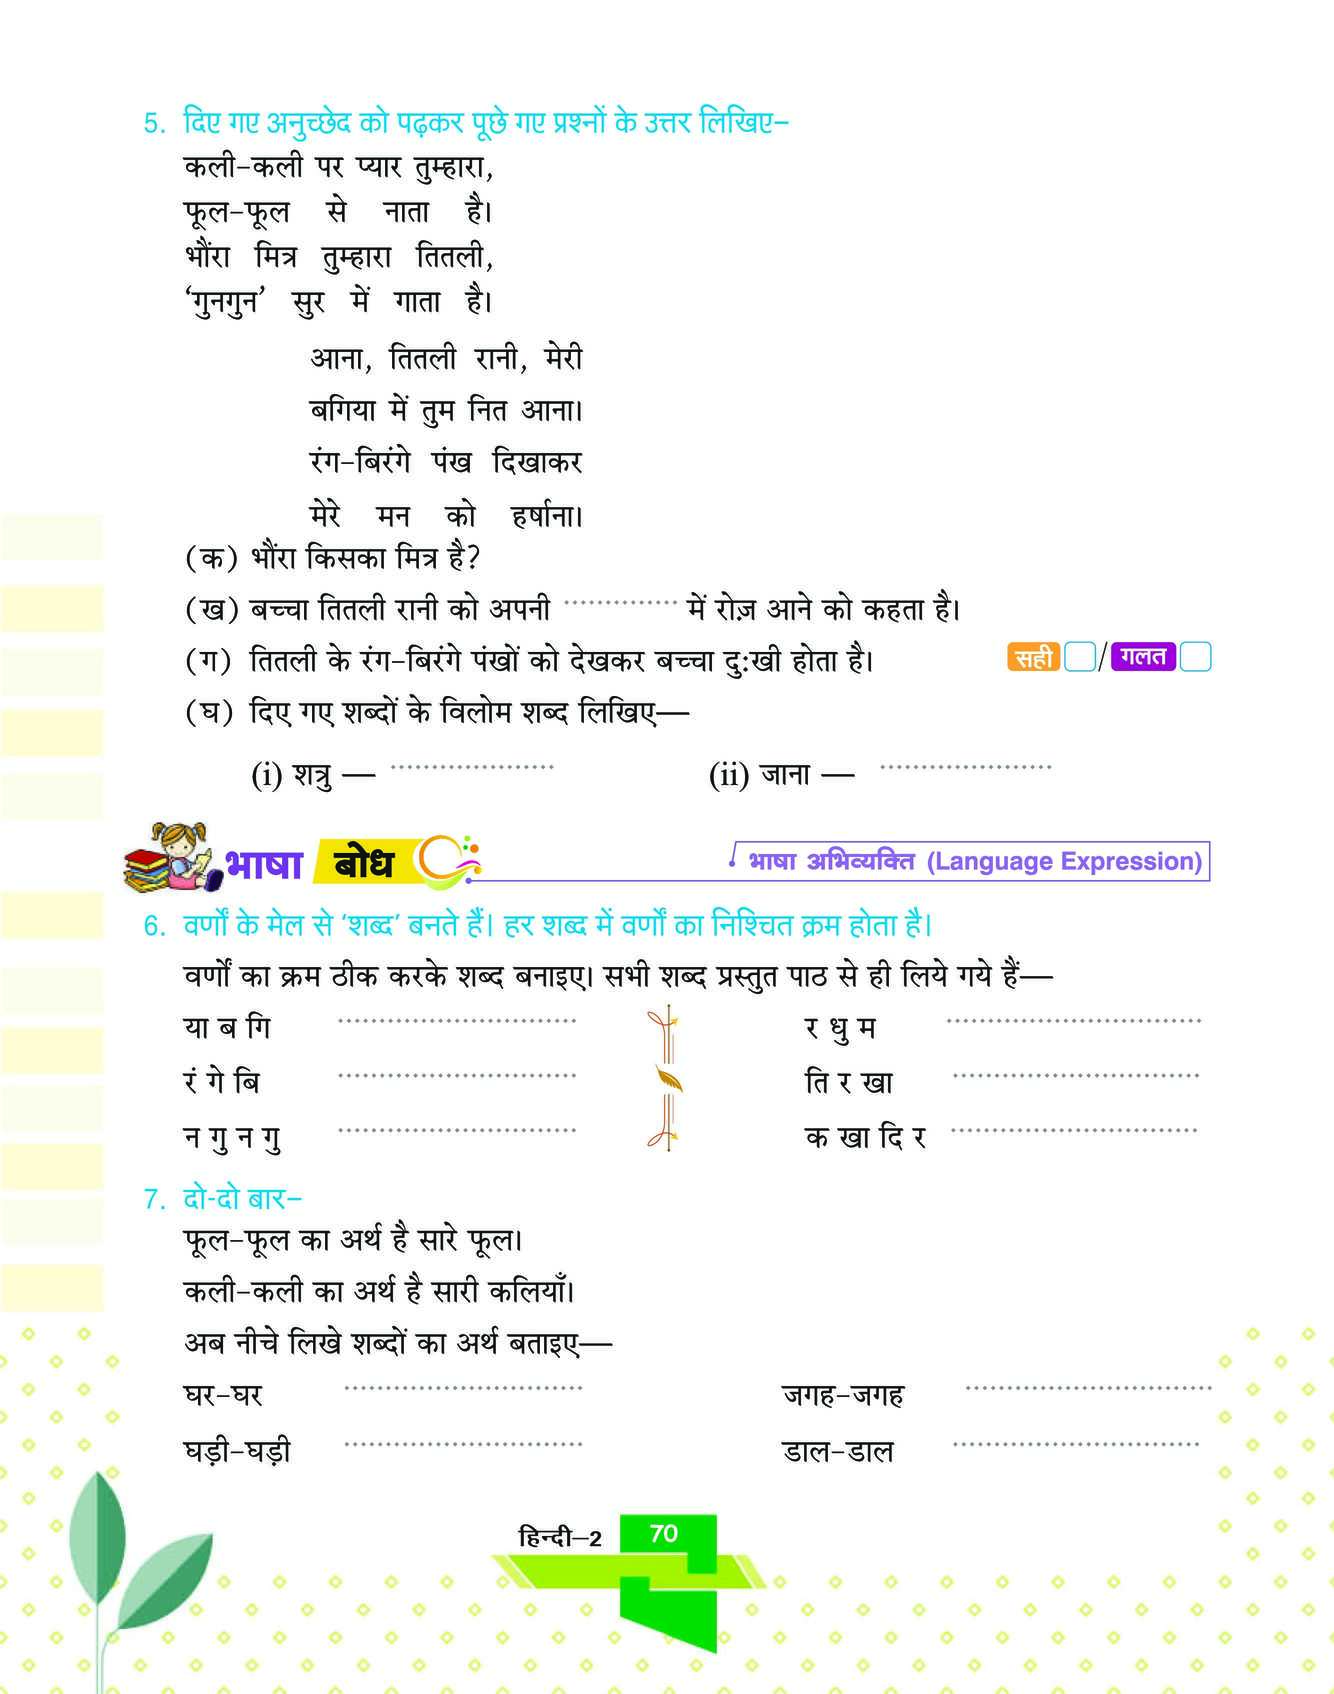 5. दिए गए अनुच्छेद को पढ़कर पूछे गए प्रश्नों के उत्तर लिखिए–
कली–कली पर प्यार तुम्हारा,
फूल–फूल से नाता है।
भौंरा मित्र तुम्हारा तितली,
‘गुनगुन’ सुर में गाता है।
आना, तितली रानी, मेरी
बगिया में तुम नित आना।
रंग–बिरंगे पंख दिखाकर
मेरे मन को हर्षाना।
(क) भौंरा किसका मित्र है?
(ख) बच्चा तितली रानी को अपनी .............. में रोज़ आने को कहता है।
(ग) तितली के रंग–बिरंगे पंखों को देखकर बच्चा दुःखी होता है। सही / गलत
(घ) दिए गए शब्दों के विलोम शब्द लिखिए—
(i) शत्रु — .................... (ii) जाना — .....................
भाषा बोध भाषा अभिव्यक्ति (Language Expression)
6. वर्णों के मेल से ‘शब्द’ बनते हैं। हर शब्द में वर्णों का निश्चित क्रम होता है।
वर्णों का क्रम ठीक करके शब्द बनाइए। सभी शब्द प्रस्तुत पाठ से ही लिये गये हैं—
या ब गि ............................. र धु म ...............................
रं गे बि ............................. ति र खा ..............................
न गु न गु ............................. क खा दि र ..............................
7. दो-दो बार–
फूल–फूल का अर्थ है सारे फूल।
कली–कली का अर्थ है सारी कलियाँ।
अब नीचे लिखे शब्दों का अर्थ बताइए—
घर–घर ............................. जगह–जगह ..............................
घड़ी–घड़ी ............................. डाल–डाल ..............................
हिन्दी–2 70